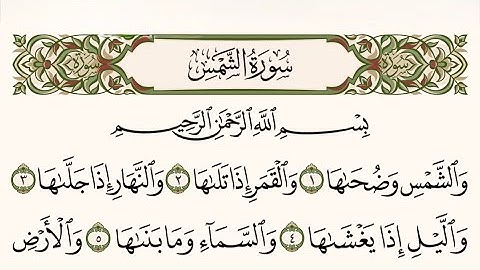 سُورَةُ الشَّمْسِ
بِسْمِ ٱللَّهِ ٱلرَّحْمَٰنِ ٱلرَّحِيمِ
وَٱلشَّمْسِ وَضُحَىٰهَا ١ وَٱلْقَمَرِ إِذَا تَلَىٰهَا ٢ وَٱلنَّهَارِ إِذَا جَلَّىٰهَا ٣
وَٱلَّيْلِ إِذَا يَغْشَىٰهَا ٤ وَٱلسَّمَآءِ وَمَا بَنَىٰهَا ٥ وَٱلْأَرْضِ